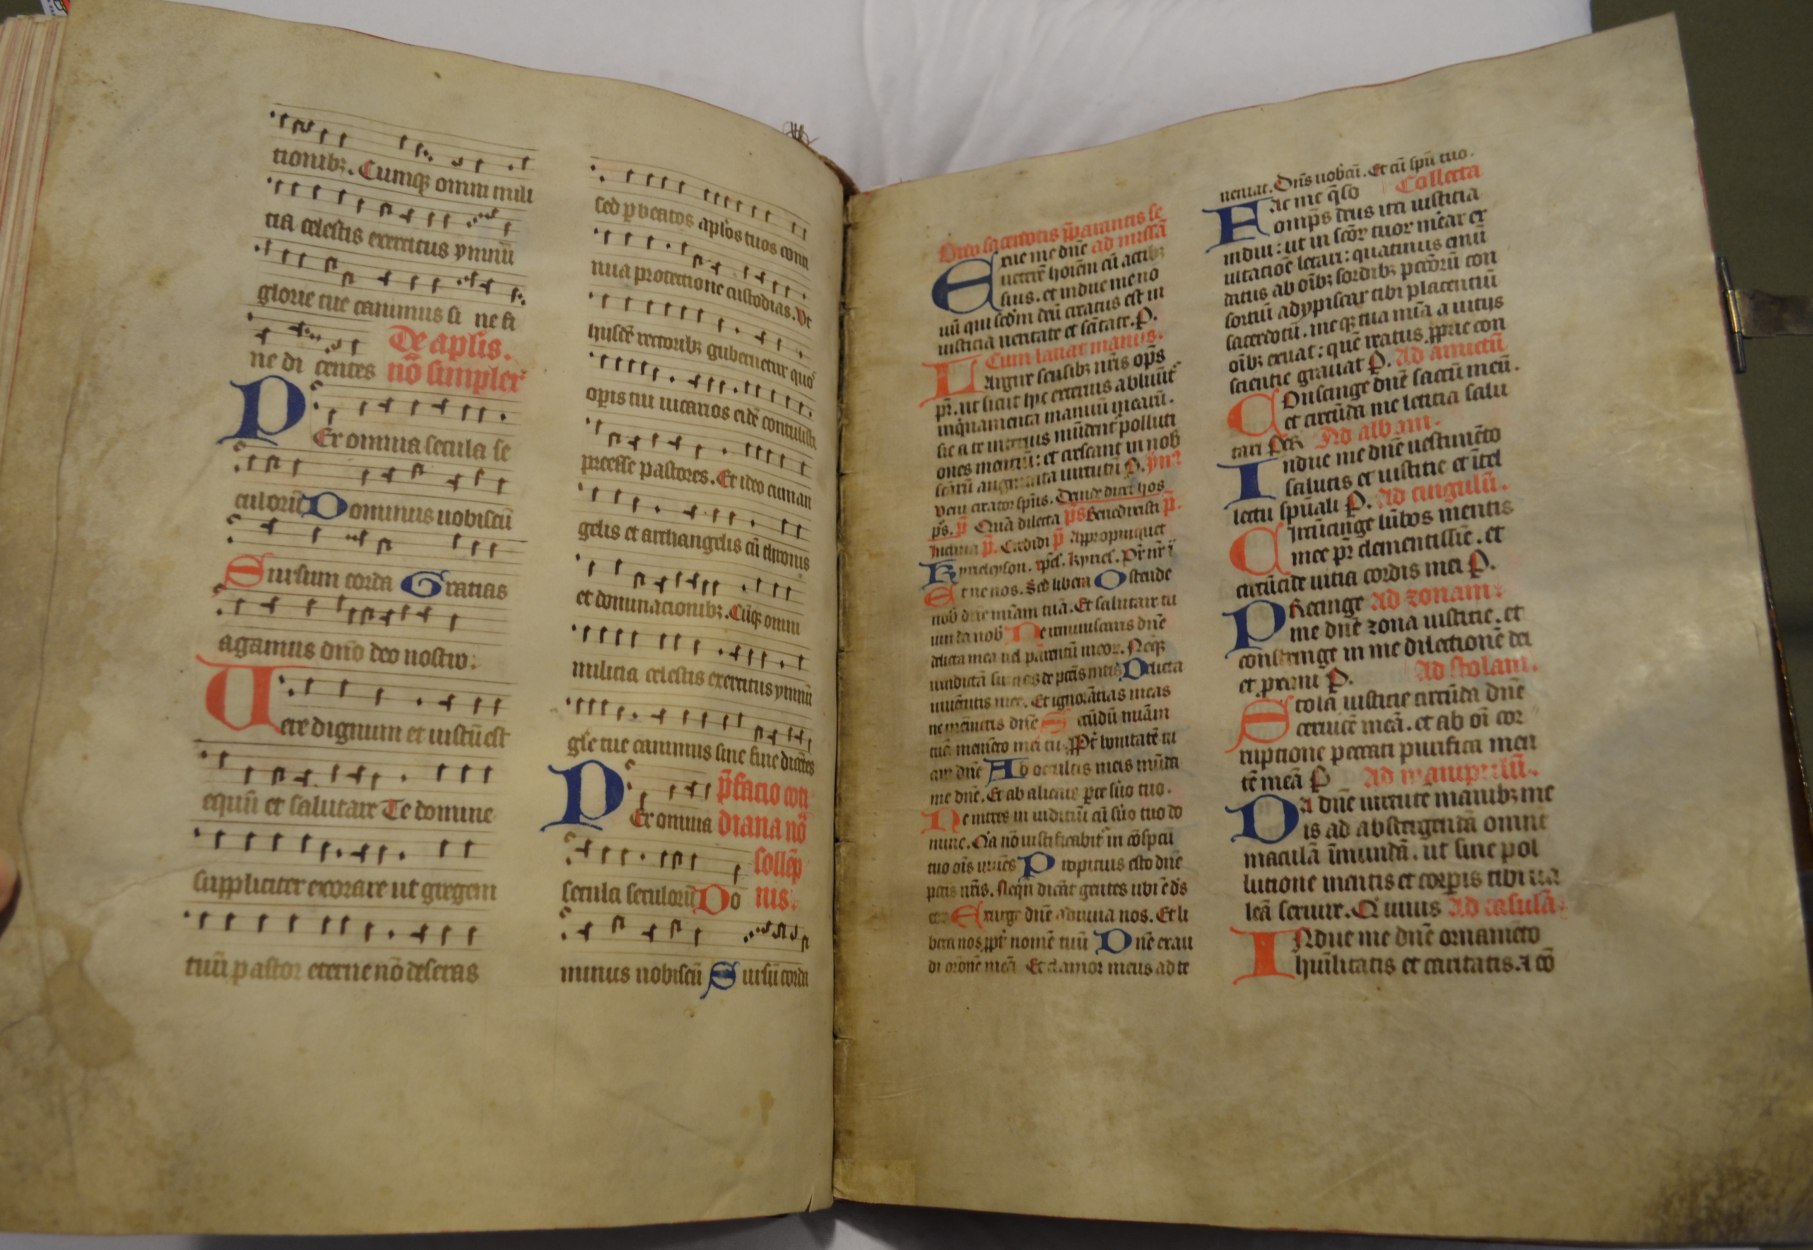 tionibꝫ. Cumqꝫ omni mili
tia celestis exercitus ymnū
glorie tue canimus si ne fi
ne di centes De aplis.
nō simpler
Per omnia secula se
culorū Dominus uobiscū
Sursum corda Gratias
agamus dnō deo nostro.
Uere dignum et iustū est
equū et salutare Te domine
suppliciter exorare ut gregem
tuū pastor eterne nō deseras
sed p beatos aplōs tuos conti
nua protectione custodias. Ut
hijsdē rectoribꝫ gubernetur quos
opis tui uicarios eidē contulisti
preesse pastores. Et ideo cum an
gelis et archangelis cū thronis
et dominacionibꝫ. Cūqꝫ omni
milicia celestis exercitus ymnū
glē tue canimus sine fine dicētes
Per omnia p̄facio coti
diana nō
sollēp
nis.
secula seculorū Do
minus uobiscū Sursū corda
ad missā
Exue me dnē
ueterē hoīem cū actibꝫ
suis. et indue me no
uū qui scdm deū creatus est in
iusticia ueritate et sctītate. P.
Cum lauat manus.
Largire sensibꝫ nrīs ops
pr. ut sicut hic exterius abluūt
inqnamenta manuū mearū.
sic a te interius mūdent polluti
ones mentiū: et crescant in nob
scārū augmenta uirtutū P. yn
Veni creator spūs. Deinde dicet hos
ps. p Qm̄ dilecta ps Benedixisti p.
Inclina p. Credidi p Appropinquet
Kyrieleyson. xpel. kyriel. Pr nr ī
Et ne nos. Sed libera Ostende
nob dne mīam tuā. Et salutare tu
um da nob Ne reminiscaris dnē
delicta mea uel parentū meor. Neqꝫ
uindictā sumas de pctīs meis Delicta
iuuētutis mee. Et ignorātias meas
ne memīeris dnē Secūdū mīam
tuā memēto mei tu. ppt bonitatē tu
am dnē Ab ocultis meis mūda
me dnē. Et ab alienis pce suo tuo.
Ne intres in iudiciū cū suo tuo do
mine. Qa nō iustificabit in cōspectu
tuo ois uiuēs Propitius esto dnē
pctis nrīs. Neqn dicāt gentes ubi ē ds
eor Exurge dnē adiuua nos. Et li
bera nos ppt nomē tuū Dnē exau
di orōne meā Et clamor meus ad te
ueniat. Dns uobcū. Et cū spu tuo.
Fac me qso Collecta
omps deus ita iusticia
indui: ut in scōr tuor mear ex
ultacōe letari: quatinus emū
datus ab oibꝫ sordibꝫ peccōrū con
sortiū adypiscar tibi placentiū
sacerdotū. me qꝫ tua mīa a uitijs
oibꝫ exuat: quē reatus pprie con
scientie grauat P. Ad amictū
Consurge dnē sacrū meū.
et circūda me leticia salu
tari Per Ad albam.
Indue me dnē uestimēto
salutis et iustitie et itel
lectu spūali P. Ad cingulū.
Circūcinge lūbos mentis
mee pr clementissīe. et
circūcide uitia cordis mei P.
Precinge Ad zonam.
me dnē zona iusticie. et
constringe in me dilectionē dei
et proxīmi P. Ad stolam.
Stola iusticie circūda dnē
ceruicē meā. et ab oī cor
ruptione peccati purifica men
tē meā P Ad manipulū.
Da dnē uirtute manibꝫ me
is ad abstergendā omnē
maculā īmundā. ut sine pol
lutione mentis et corpis tibi ua
leā seruire. Qi uiuis Ad casulā.
Indue me dnē ornamēto
humilitatis et caritatis. ⁊ cō